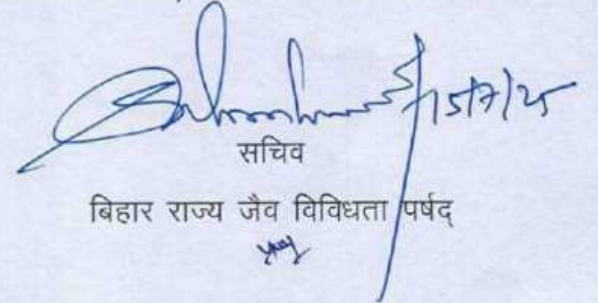 15/7/25
सचिव
बिहार राज्य जैव विविधता पर्षद्